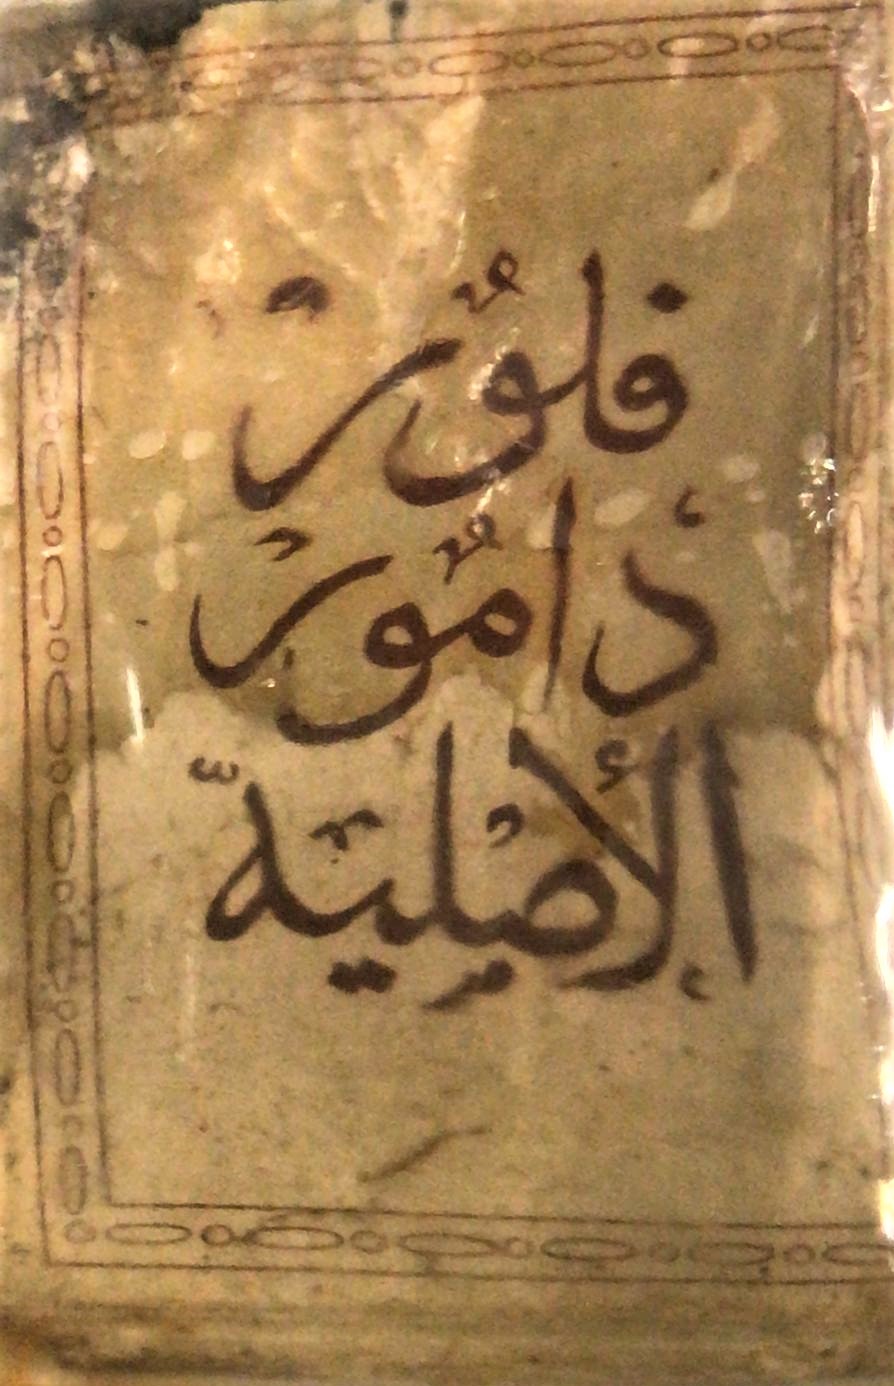 فلُورْ
دَامُورْ
الأصْلِيَّة